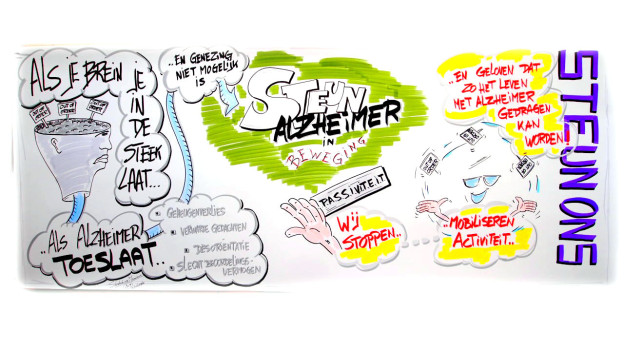 ALS JE BREIN
JE
IN
DE
STEEK
LAAT...
..ALS ALZHEIMER
TOESLAAT..
GEHEUGENVERLIES
VERWARDE GEDACHTEN
DESORIËNTATIE
SLECHT BEOORDELINGS-
VERMOGEN
..EN GENEZING
NIET MOGELIJK
IS
STEUN
ALZHEIMER
IN
BEWEGING
PASSIVITEIT
WIJ
STOPPEN..
..MOBILISEREN
ACTIVITEIT..
..EN GELOVEN DAT
ZO HET LEVEN
MET ALZHEIMER
GEDRAGEN
KAN
WORDEN!
STEUN ONS